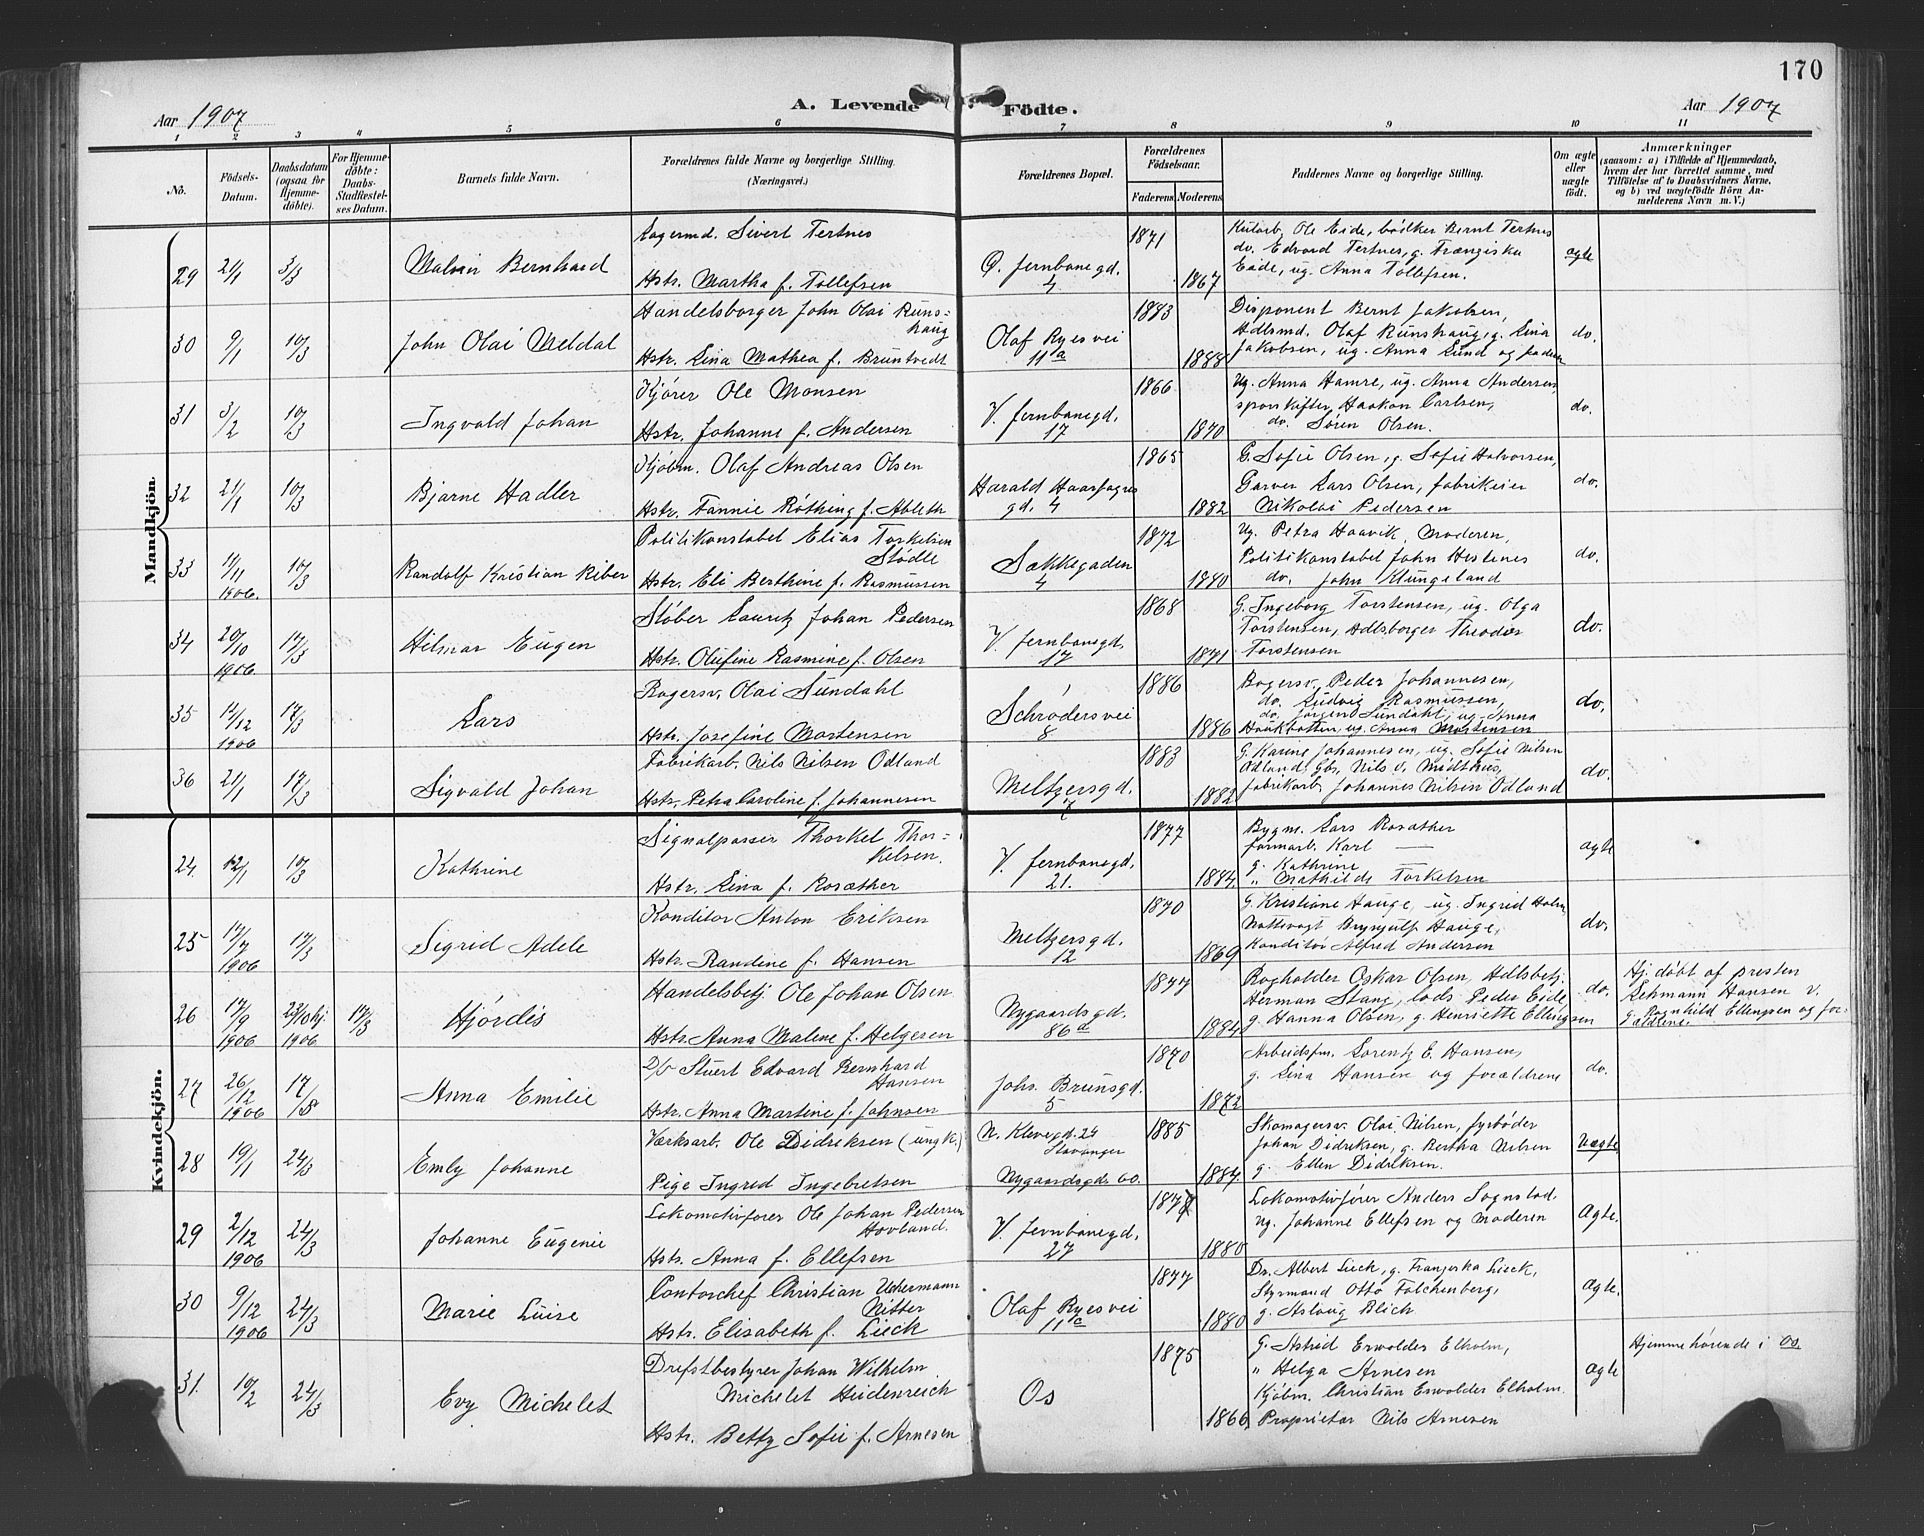 170
A. Levende Födte.
Aar 1907
Aar 1907
1 2 3 4 5 6 7 8 9 10 11
No.
Födsels-Datum.
Daabsdatum (ogsaa for Hjemmedöbte).
For Hjemmedöbte: Daabs-Stadfæstelses Datum.
Barnets fulde Navn.
Forældrenes fulde Navne og borgerlige Stilling. (Næringsvei.)
Forældrenes Bopæl.
Forældrenes Födselsaar.
Faderens Moderens
Faddernes Navne og borgerlige Stilling.
Om ægte eller uægte födt.
Anmærkninger
(saasom: a) i Tilfælde af Hjemmedaab, hvem der har forrettet samme, med Tilföielse af to Daabsvidners Navne, og b) ved uægtefödte Börn Anmelderens Navn m. V.)
Mandkjön.
29 2/1 3/3 Malvin Bernhard
Lagermd. Sivert Tertnes
Hstr. Martha f. Tollefsen
Ø. Jernbanegd. 4
1871 1867
Kularb. Ole Eide, bödker Bernt Tertnes
do. Edvard Tertnes, g. Frangiska
Eide, ug. Anna Tollefsen.
ægte
30 9/1 10/3 John Olai Meldal
Handelsborger John Olai Runshaug
Hstr. Lina Mathea f. Bruntvedt
Olaf Ryesvei 11a
1883 1888
Disponent Bernt Jakobsen,
Hdlsmd. Olaf Runshaug, g. Lina
Jakobsen, ug. Anna Lund og faderen
do.
31 3/2 10/3 Ingvald Johan
Kjører Ole Monsen
Hstr. Johanne f. Andersen
V. Jernbanegd. 17
1866 1870
Ug. Anna Hamre, ug. Anna Andersen,
sporskifter Haakon Carlsen,
do. Søren Olsen.
do.
32 21/1 10/3 Bjarne Hadler
Kjøbm. Olaf Andreas Olsen
Hstr. Fannie Røthing f. Ableth
Harald Haarfagres gd. 4
1865 1882
G. Sofie Olsen, g. Sofie Halvorsen,
Garver Lars Olsen, fabrikeier
Nikolai Pedersen
do.
33 11/11 1906. 10/3 Randolf Kristian Riber
Politikonstabel Elias Torkelsen Stødle
Hstr. Eli Berthine f. Rasmussen
Sækkegaden 4
1872 1880
Ug. Petra Haavik, Moderen,
Politikonstabel John Hestenes
do. John Klungeland
do.
34 20/10 1906 17/3 Hilmar Eugen
Støber Lauritz Johan Pedersen
Hstr. Olufine Rasmine f. Olsen
V. Jernbanegd. 17
1868 1871
G. Ingeborg Torstensen, ug. Olga
Torstensen, Hdlsborger Theodor
Torstensen
do.
35 12/12 1906 17/3 Lars
Bagersv. Olai Sundahl
Hstr. Josefine Mortensen
Schrødersvei 8
1886 1886
Bagersv. Peder Johannesen,
do. Ludvig Rasmussen,
do. Jørgen Sundahl, ug. Anna
ug. Anna Mortensen
do.
36 21/1 17/3 Sigvald Johan
Fabrikarb. Nils Nilsen Odland
Hstr. Petra Caroline f. Johannesen
Meltzersgd. 7
1883 1882
G. Karine Johannesen, ug. Sofie Nilsen
Odland, Gbr. Nils V. Midthus,
fabrikarb. Johannes Nilsen Odland
do.
Kvindekjön.
24. 12/1 10/3 Kathrine
Signalpasser Thorkel Thorkelsen.
Hstr. Lina f. Rosæther
V. Jernbanegd. 21.
1877 1884
Bygm. Lars Rosæther
formarb. Karl —
g. Kathrine
" Mathilde Torkelsen
ægte
25 17/7 1906 17/3 Sigrid Adele
Konditor Anton Eriksen
Hstr. Randine f. Hansen
Meltzersgd. 12
1870 1869
G. Kristiane Hauge, ug. Ingrid Holm,
Nattevagt Brynjulf Hauge,
Konditor Alfred Andersen
do.
26 17/9 1906 23/10 hj. 1906 17/3 Hjördis
Handelsbetj. Ole Johan Olsen
Hstr. Anna Malene f. Helgesen
Nygaardsgd. 86a
1877 1884
Bogholder Oskar Olsen, Hdlsbetj.
Herman Stang, lods Peder Eide,
g. Hanna Olsen, g. Henriette Ellingsen
do.
Hj. döbt af presten
Lehmann Hansen v.
g. Ragnhild Ellingsen og forældrene.
27 26/12 1906 17/3 Anna Emilie
D/v Stuert Edvard Bernhard Hansen
Hstr. Anna Martine f. Johnsen
Johs. Brunsgd. 5
1870 1872
Arbeidsfm. Lorentz E. Hansen,
g. Lina Hansen og forældrene
do.
28 19/1 24/3 Emly Johanne
Værksarb. Ole Didriksen (ungk.)
Pige Ingrid Ingebretsen
N. Klevegd. 24 Stavanger
Nygaardsgd. 60.
1885 1884
Skomagersv. Olai Nilsen, fyrbøder
Johan Didriksen, g. Bertha Nilsen
g. Ellen Didriksen.
uægte
29 2/12 1906 24/3 Johanne Eugenie
Lokomotivfører Ole Johan Pedersen Hovland.
Hstr. Anna f. Ellefsen
V. Jernbanegd. 27
1878 1880
Lokomotivfører Anders Sognstad.
ug. Johanne Ellefsen og Moderen
Ægte.
30 9/12 1906 24/3 Marie Luise
Contorchef Christian Uchermann Nitter
Hstr. Elisabeth f. Lieck
Olaf Ryesvei 11c
1877 1880
Dr. Albert Lieck, g. Franziska Lieck,
Styrmand Otto Falchenberg,
g. Aslaug Blich
ægte.
31. 10/2 24/3 Evy Michelet
Driftbestyrer Johan Wilhelm
Michelet Heidenreich
Hstr. Betty Sofie f. Arnesen
Os
1875 1866
G. Astrid Enwolder Elholm,
" Helga Arnesen
Kjøbm. Christian Enwolder Elholm.
Proprietær Nils Arnesen
ægte
Hjemmehørende i Os.